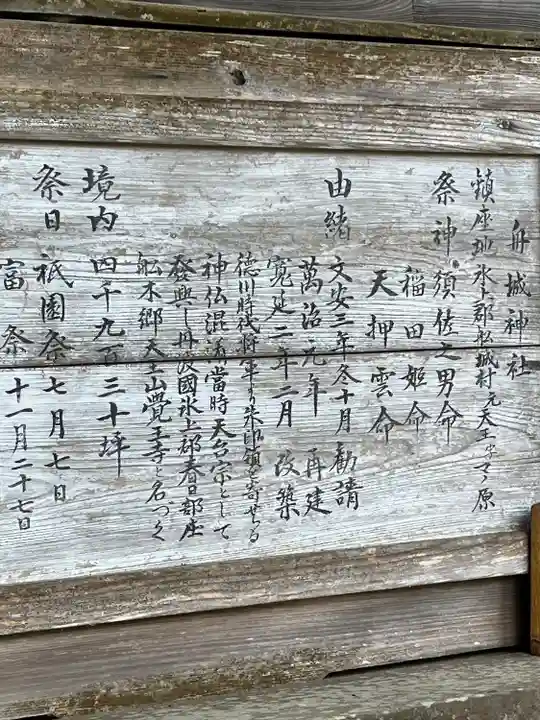 舟城神社
鎮座地 氷上郡船城村元天王字マノ原
祭神 須佐之男命
稲田姫命
天押雲命
由緒 文安三年冬十月勧請
萬治元年 再建
寛延二年二月 改築
徳川時代将軍ゟ朱印領を寄せらる
神仏混淆當時天台宗として
發興し丹波國氷上郡春日部庄
舩木郷天王山覺王寺と名づく
境内 四千九百三十坪
祭日 祇園祭 七月七日
富祭 十一月二十七日